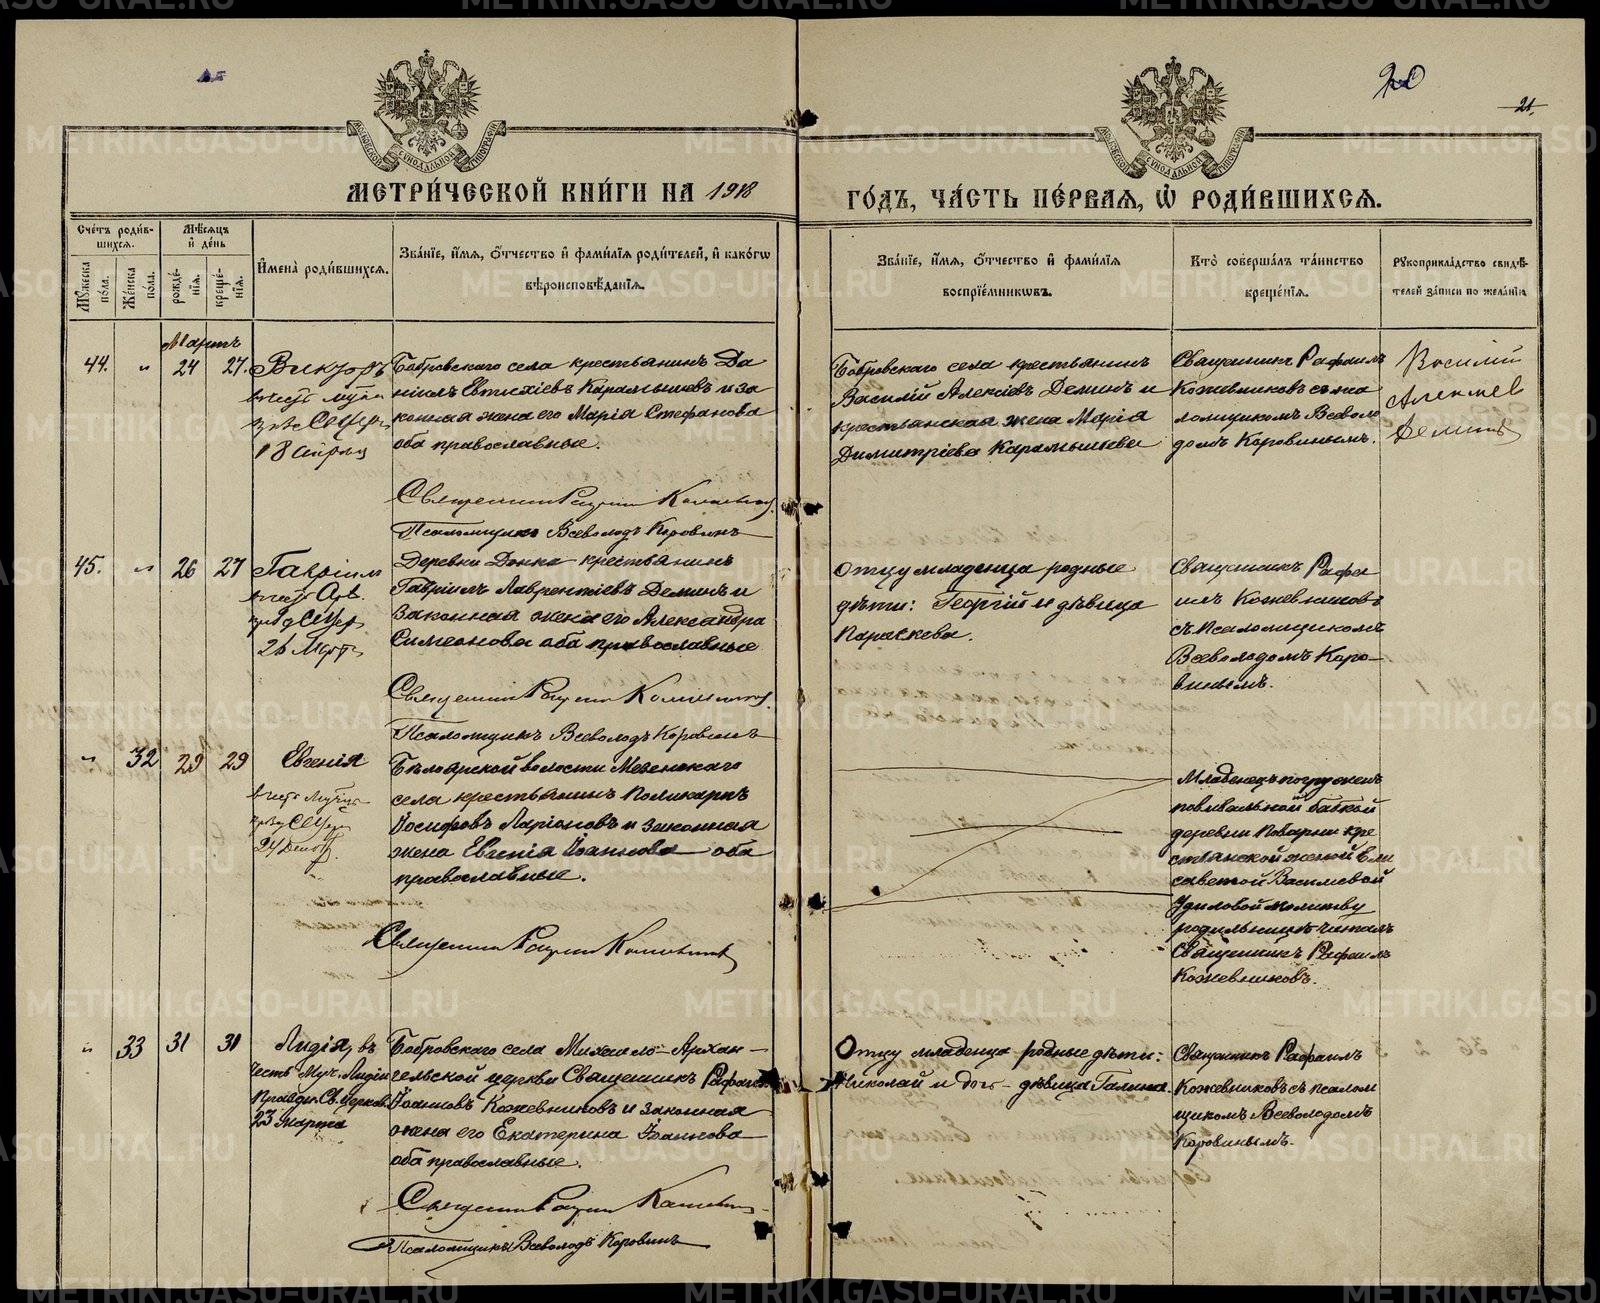 20
21.
МЕТРИ́ЧЕСКОЙ КНИ́ГИ НА 1918
ГО́ДЪ, ЧА́СТЬ ПЕ́РВАЯ, Ѽ РОДИ́ВШИХСЯ.
Сче́тъ роди́в-
шихся.
Мꙋ́жеска по́ла.
Же́нска по́ла.
Мѣ́сяцъ и де́нь
рожде́-
нїя.
креще́-
нїя.
И҆мена̀ роди́вшихся.
Зва́нїе, и҆́мя, ѻ҆́тчество и҆ фами́лїя роди́телей, и҆ како́гѡ
вѣроисповѣ́данїя.
Зва́нїе, и҆́мя, ѻ҆́тчество и҆ фами́лїя
воспрїе́мникѡвъ.
Кто̀ соверша́лъ та́инство
креще́нїя.
Рꙋкоприкла́дство свидѣ́-
телей за́писи по жела́нїю.
Мартъ
44.
"
24
27.
Викторъ
18 апрѣля
Бобровскаго села крестьянинъ Да
нiилъ Евтихiевъ Карамышевъ и за
конная жена его Марiя Стефанова
оба православные.
Священникъ Рафаилъ Кожевниковъ
Псаломщикъ Всеволодъ Коровинъ
Бобровскаго села крестьянинъ
Василiй Алексiевъ Деминъ и
крестьянская жена Марiя
Димитрiева Карамышева
Священникъ Рафаилъ
Кожевниковъ съ пса
ломщикомъ Всеволо
домъ Коровинымъ.
Василiй
Алексеев
Деминъ
45.
"
26
27
Гаврiилъ
26 Марта
Деревни Донки крестьянинъ
Гаврiилъ Лаврентiевъ Деминъ и
законная жена его Александра
Симеонова оба православные
Священникъ Рафаилъ Кожевниковъ
Псаломщикъ Всеволодъ Коровинъ
Отцу младенца родные
дѣти: Георгiй и дѣвица
Параскева.
Священникъ Рафа
илъ Кожевниковъ
съ Псаломщикомъ
Всеволодомъ Коро-
винымъ.
"
32
29
29
Евгенiя
24 Декабр.
Бѣлоярской волости Мезенскаго
села крестьянинъ Поликарпъ
Iосифовъ Ларiоновъ и законная
жена Евгенiя Iоаннова оба
православные.
Священникъ Рафаилъ Кожевниковъ
Младенецъ погруженъ
повивальной бабкой
деревни Поварни кре
стьянской женой Ели
саветой Васильевой
Удиловой молитву
родильницѣ читалъ
Священникъ Рафаилъ
Кожевниковъ.
"
33
31
31
Лидiя, въ
честь Муч. Лидiи
Праздн. Св. Церков.
23 марта
Бобровскаго села Михаило-Архан-
гельской церкви Священникъ Рафаилъ
Iоанновъ Кожевниковъ и законная
жена его Екатерина Iоаннова
оба православные.
Священникъ Рафаилъ Кожевниковъ
Псаломщикъ Всеволодъ Коровинъ
Отцу младенца родные дѣти:
Николай и дочь-дѣвица Галина.
Священникъ Рафаилъ
Кожевниковъ съ псалом
щикомъ Всеволодомъ
Коровинымъ.
METRIKI.GASO-URAL.RU